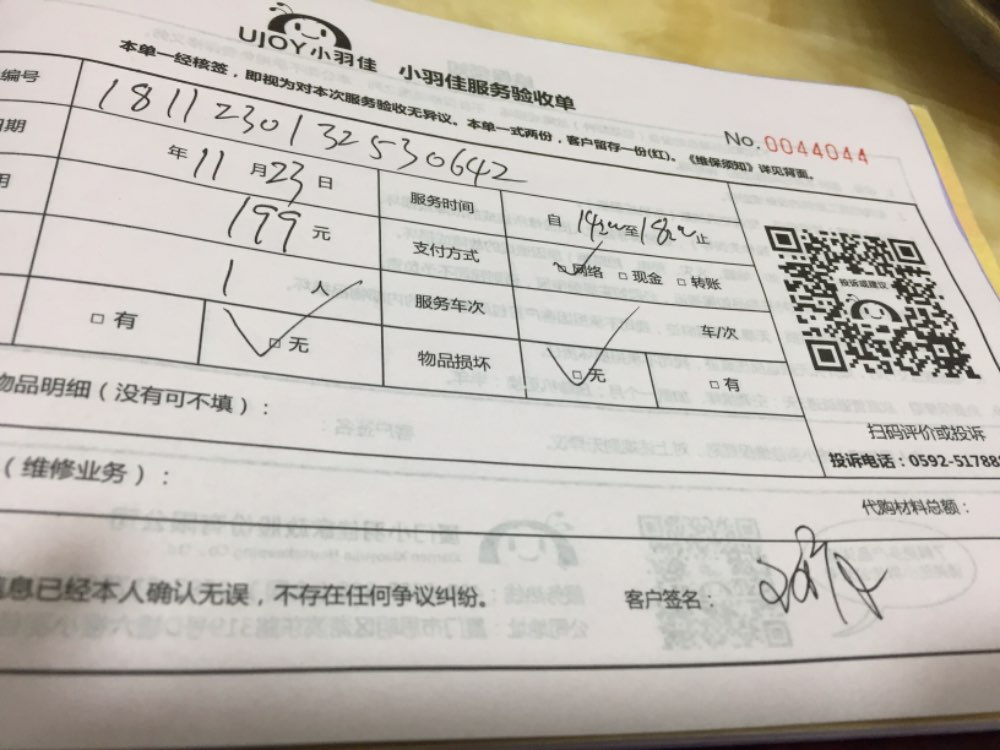 UJOY小羽佳 小羽佳服务验收单
本单一经核签，即视为对本次服务验收无异议。本单一式两份，客户留存一份(红)。《维保须知》详见背面。
No.0044044
编号 181123013253064​2
期 年11月23日 服务时间 自 至 止
用 199元 支付方式 网络 □现金 □转账
1 人 服务车次 车/次
□有 □无 物品损坏 □无 □有
投诉或建议
物品明细（没有可不填）：
扫码评价或投诉
投诉电话：0592-51788
（维修业务）：
代购材料总额：
信息已经本人确认无误，不存在任何争议纠纷。 客户签名：